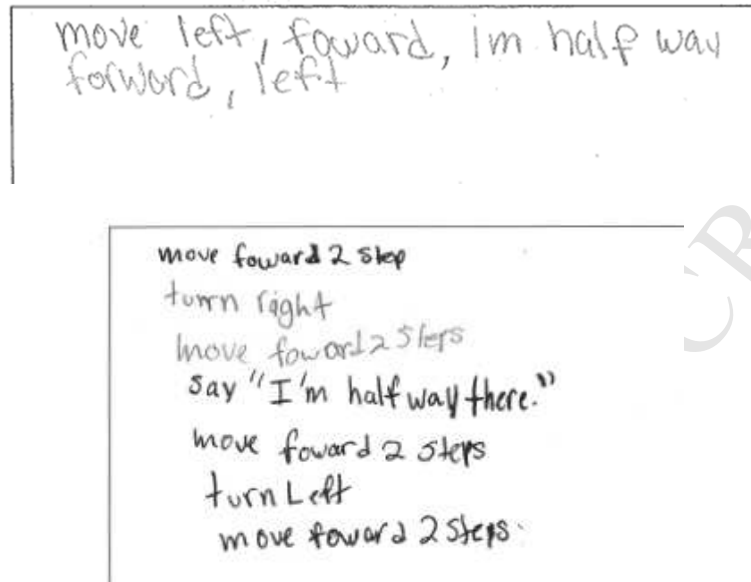 move left, foward, im half way
forward, left
move foward 2 step
turn right
move foward 2 steps
say "I'm half way there."
move foward 2 steps
turn Left
move foward 2 steps.
CR